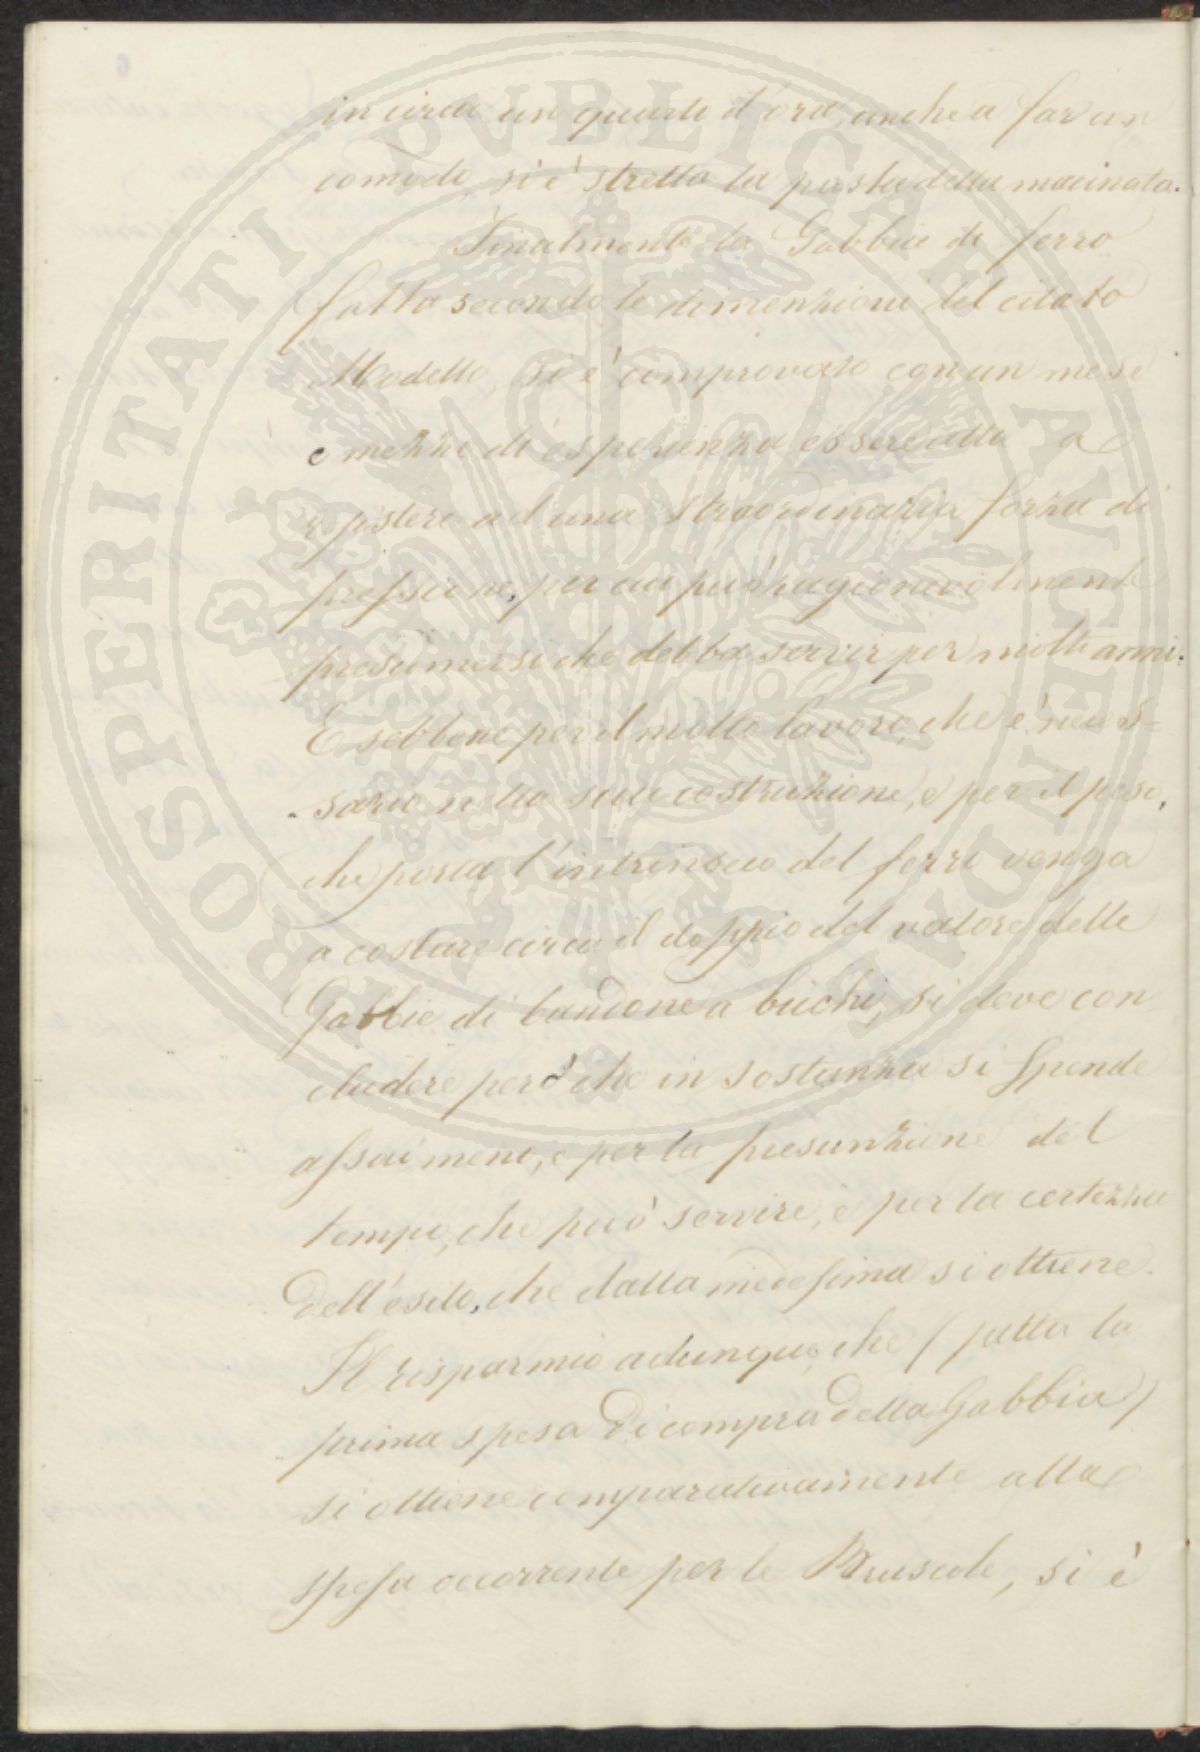 in circa un quarto d'ora, anche a far un
comodo, si è stretta la pasta della macinata.
Finalmente la Gabbia di ferro
fatta secondo le dimenzioni del citato
Modello, si è comprovato con un mese
e mezzo di esperienza essere atta a
resistere ad una straordinaria forza di
pressione, per cui può ragionevolmente
presumersi che debba servir per molti anni.
E sebbene per il molto lavoro, che è neces=
sario nella sua costruzione, e per il peso,
che porta l'intrinseco del ferro venga
a costare circa il doppio del valore delle
Gabbie di bandone a buchi, si deve con
cludere però che in sostanza si spende
assai meno, e per la presunzione del
tempo, che può servire, e per la certezza
dell'esito, che dalla medesima si ottiene.
Il risparmio adunque, che (fatta la
prima spesa di compra della Gabbia)
si ottiene comparativamente alla
spesa occorrente per le Bruscole, si è
PROSPERITATI PVBLICAE AVGENDAE